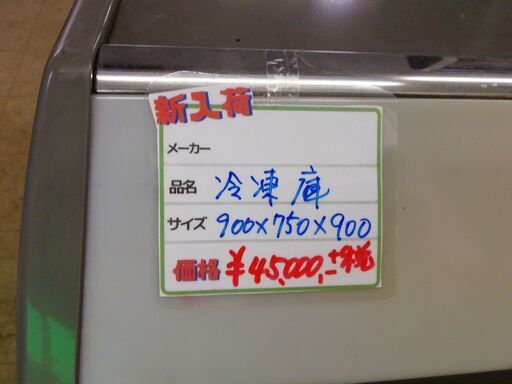 新入荷
メーカー
品名 冷凍庫
サイズ 900×750×900
価格 ¥45,000,- +税